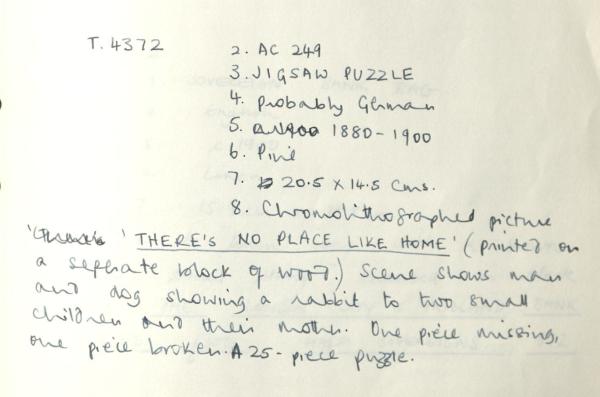 T. 4372 2. AC 249
3. JIGSAW PUZZLE
4. Probably German
5. 1880-1900
6. Pine
7. 20.5 x 14.5 cms.
8. Chromolithographed picture
'THERE'S NO PLACE LIKE HOME' (printed on
a seperate block of wood.) Scene shows man
and dog showing a rabbit to two small
children and their mother. One piece missing,
one piece broken. A 25-piece puzzle.